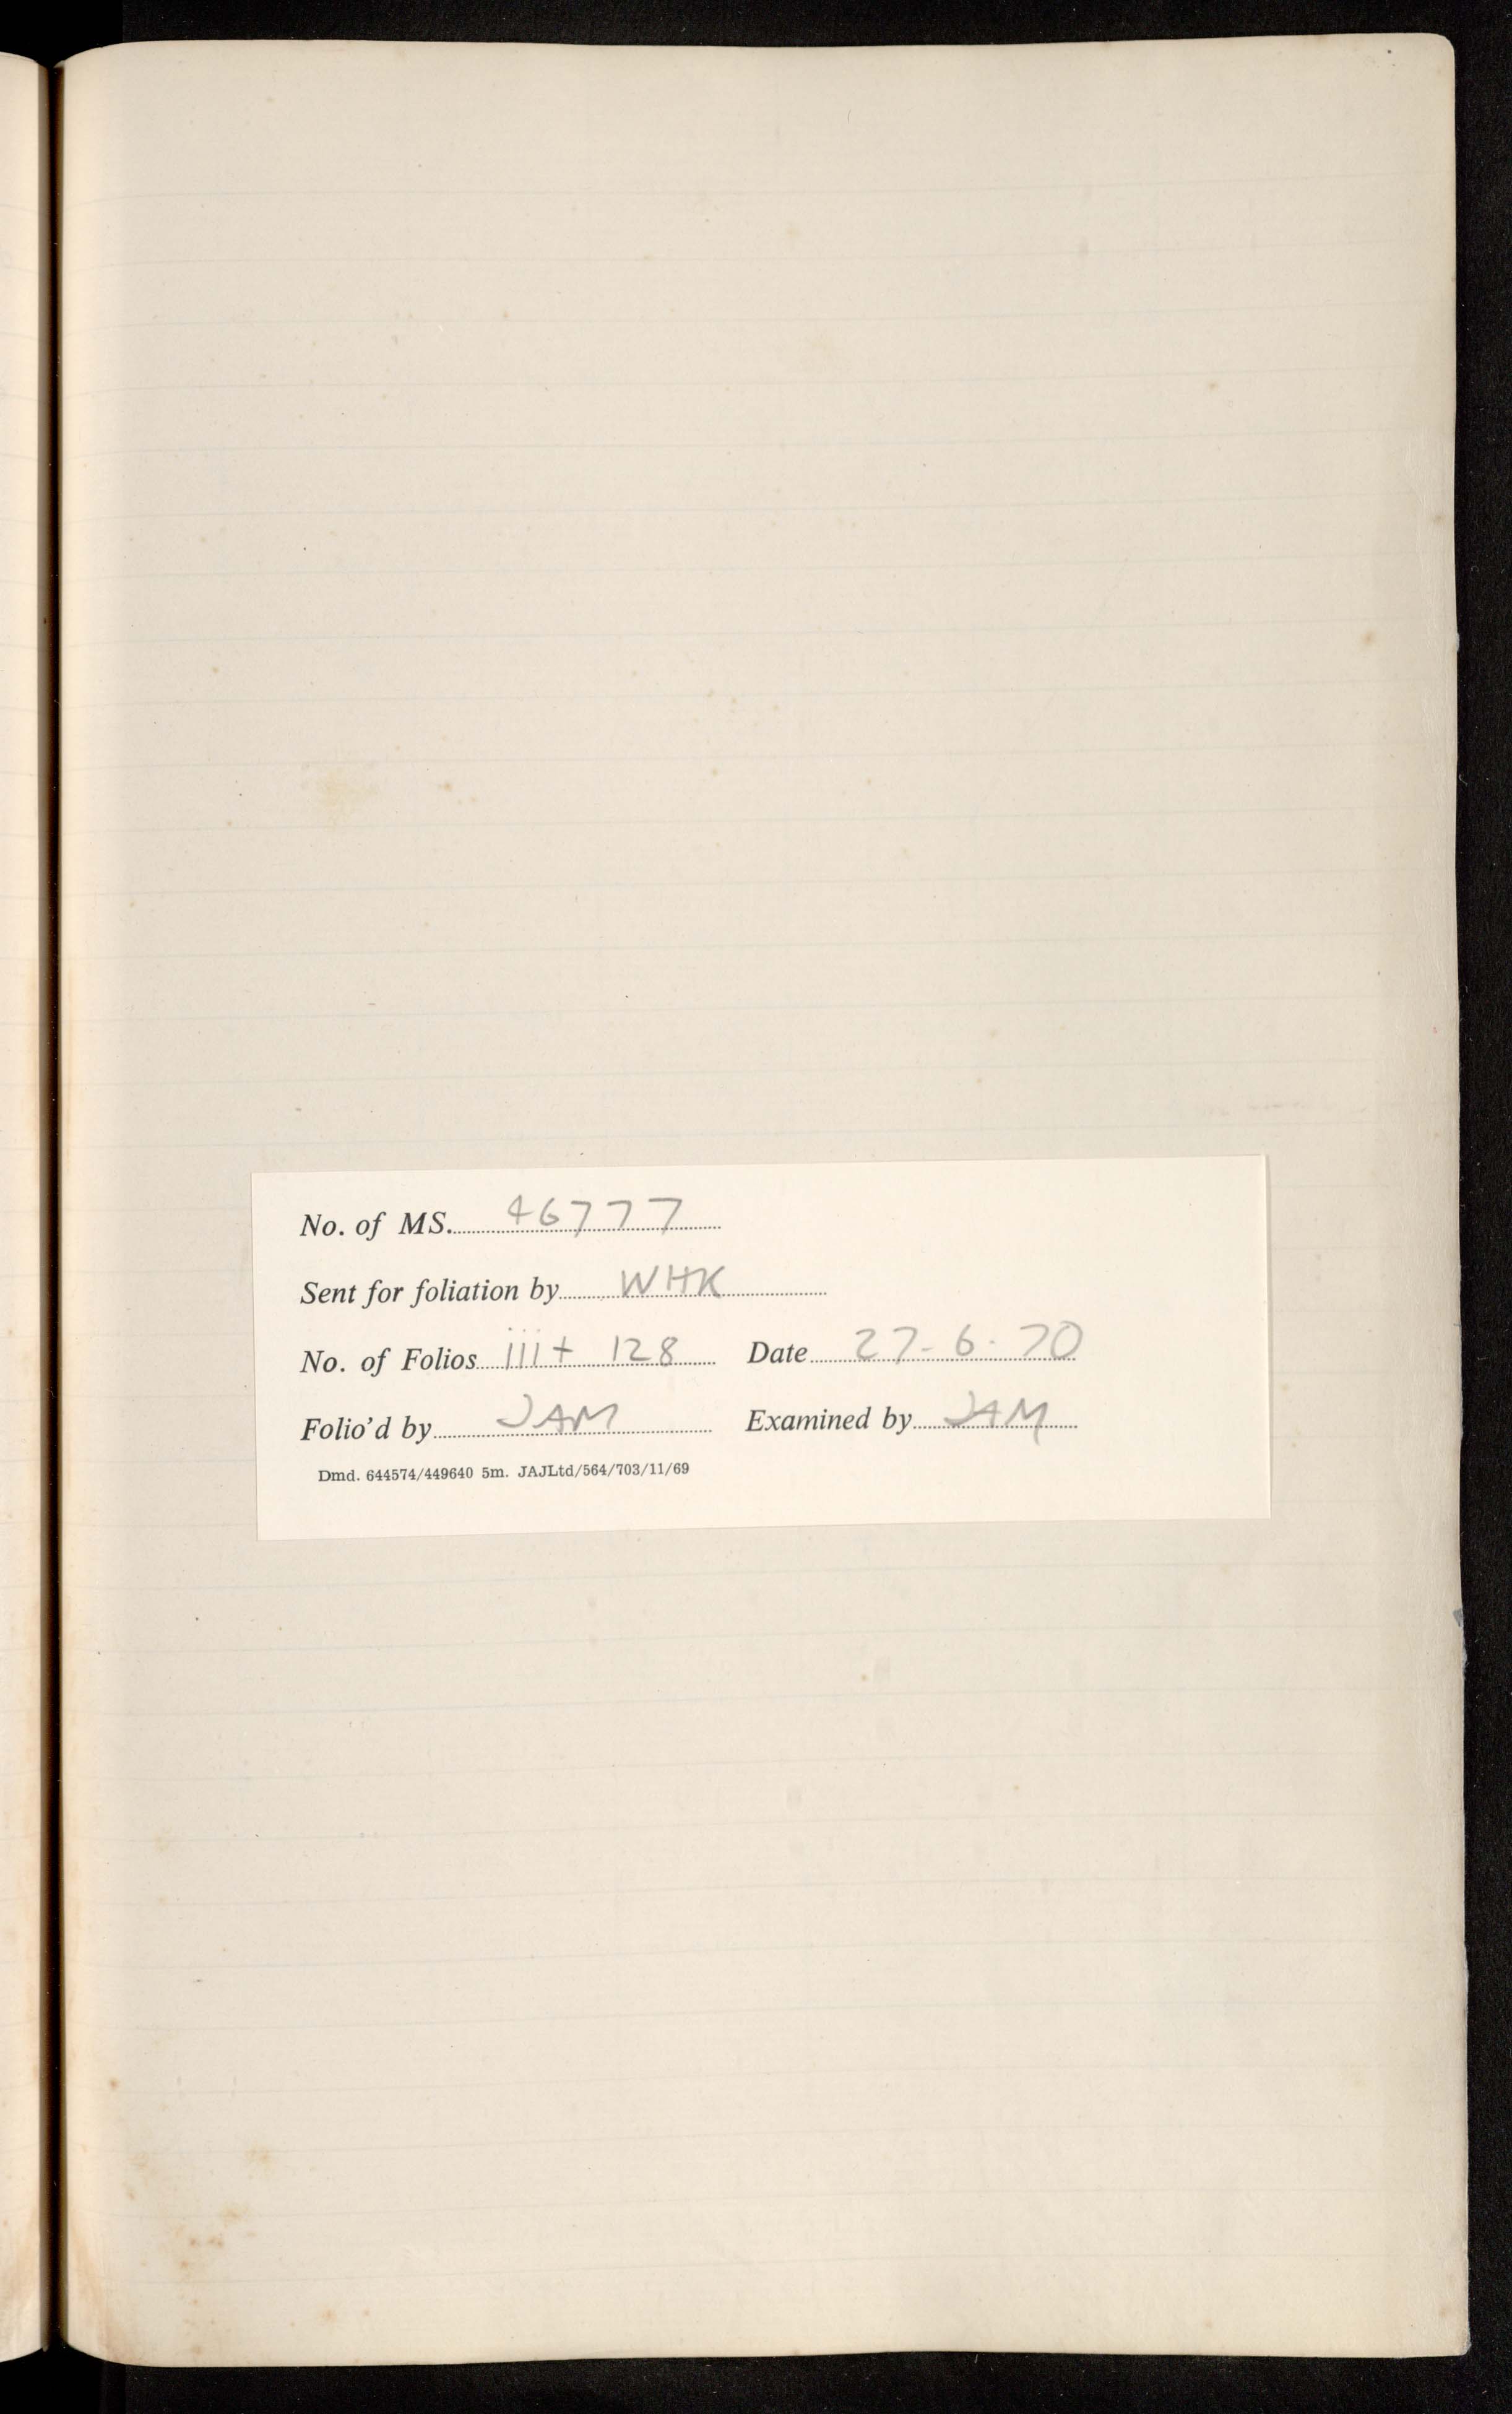 No. of MS. 46777
Sent for foliation by WHK
No. of Folios iii + 128 Date 27-6-70
Folio'd by JAM Examined by JAM
Dmd. 644574/449640 5m. JAJLtd/564/703/11/69